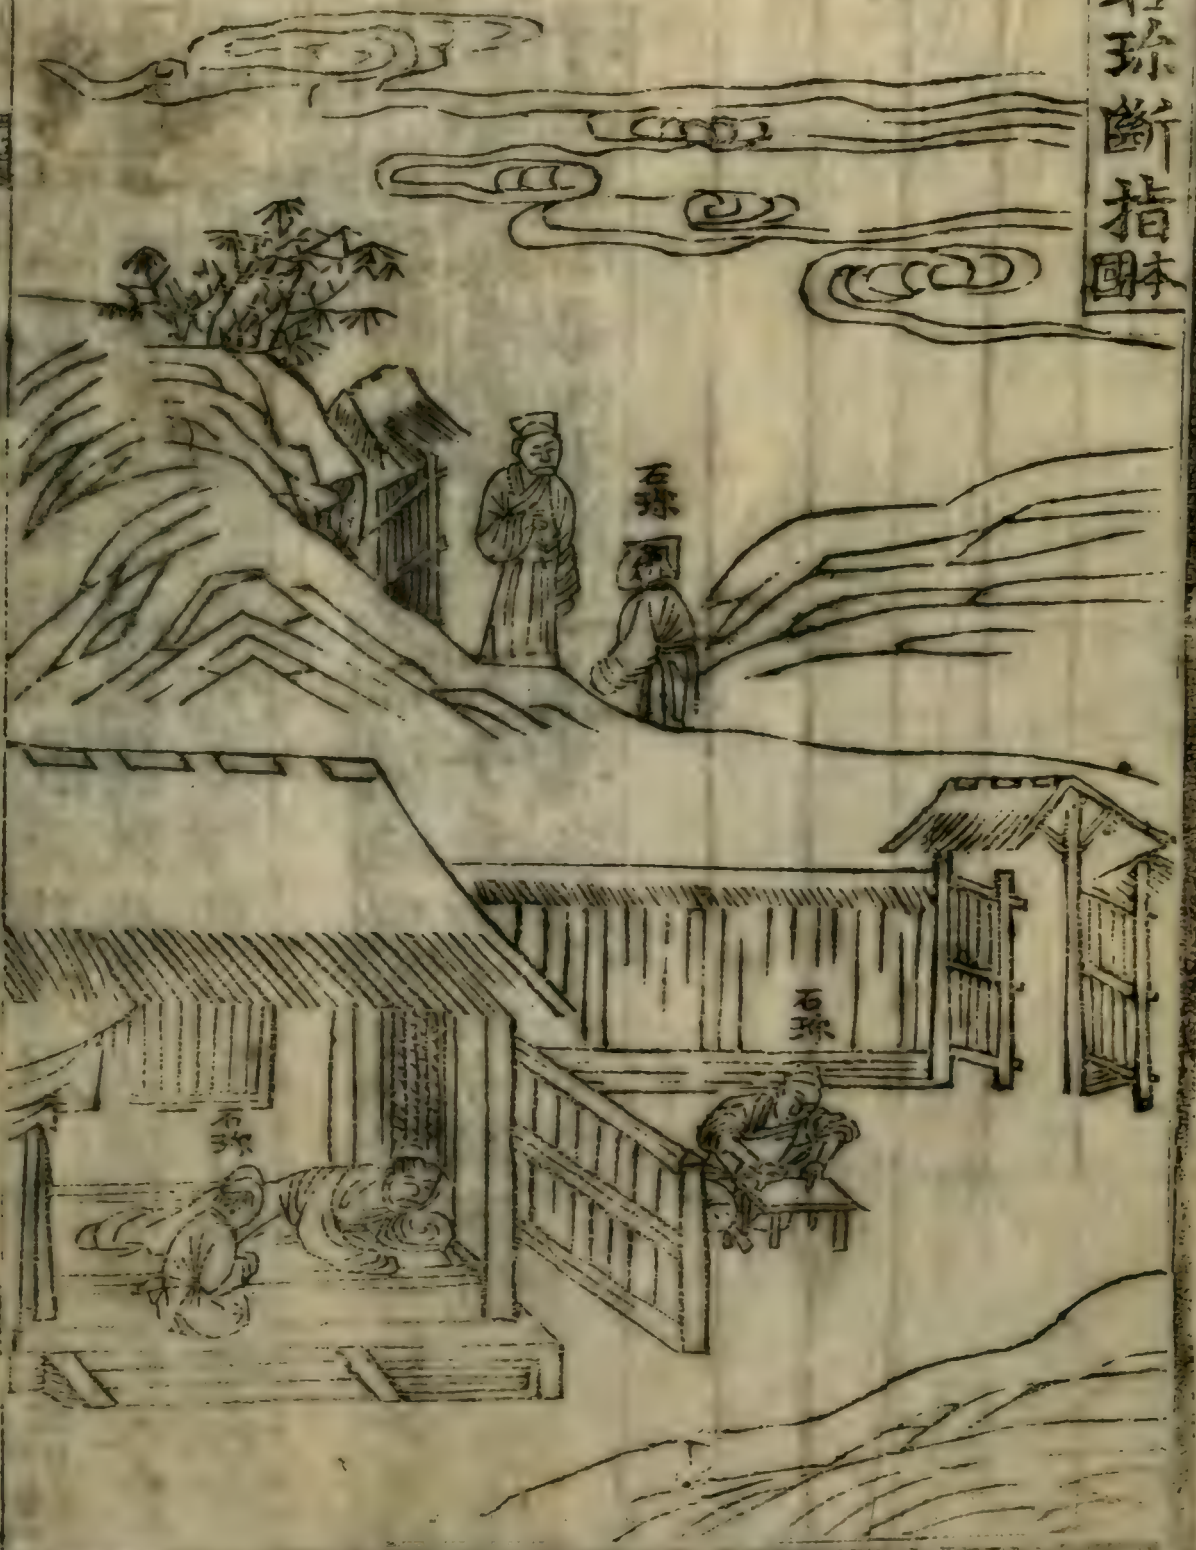 石珎斷指 本國
石珎
石珎
石珎